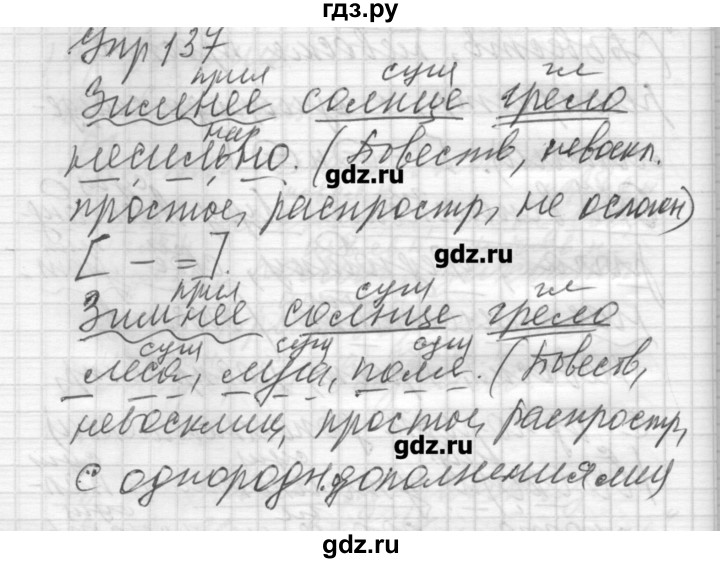 гдз.ру
Упр 137
прил сущ гл
Зимнее солнце грело
нар
несильно. (Повеств, невоскл.
gdz.ru
простое, распростр, не ослож)
gdz.ru
[ – = ].
прил сущ гл
Зимнее солнце грело
сущ сущ сущ
леса, луга, поля. (Повеств,
невосклиц, простое, распростр,
gdz.ru
с однородн. дополнениями)
gdz.ru